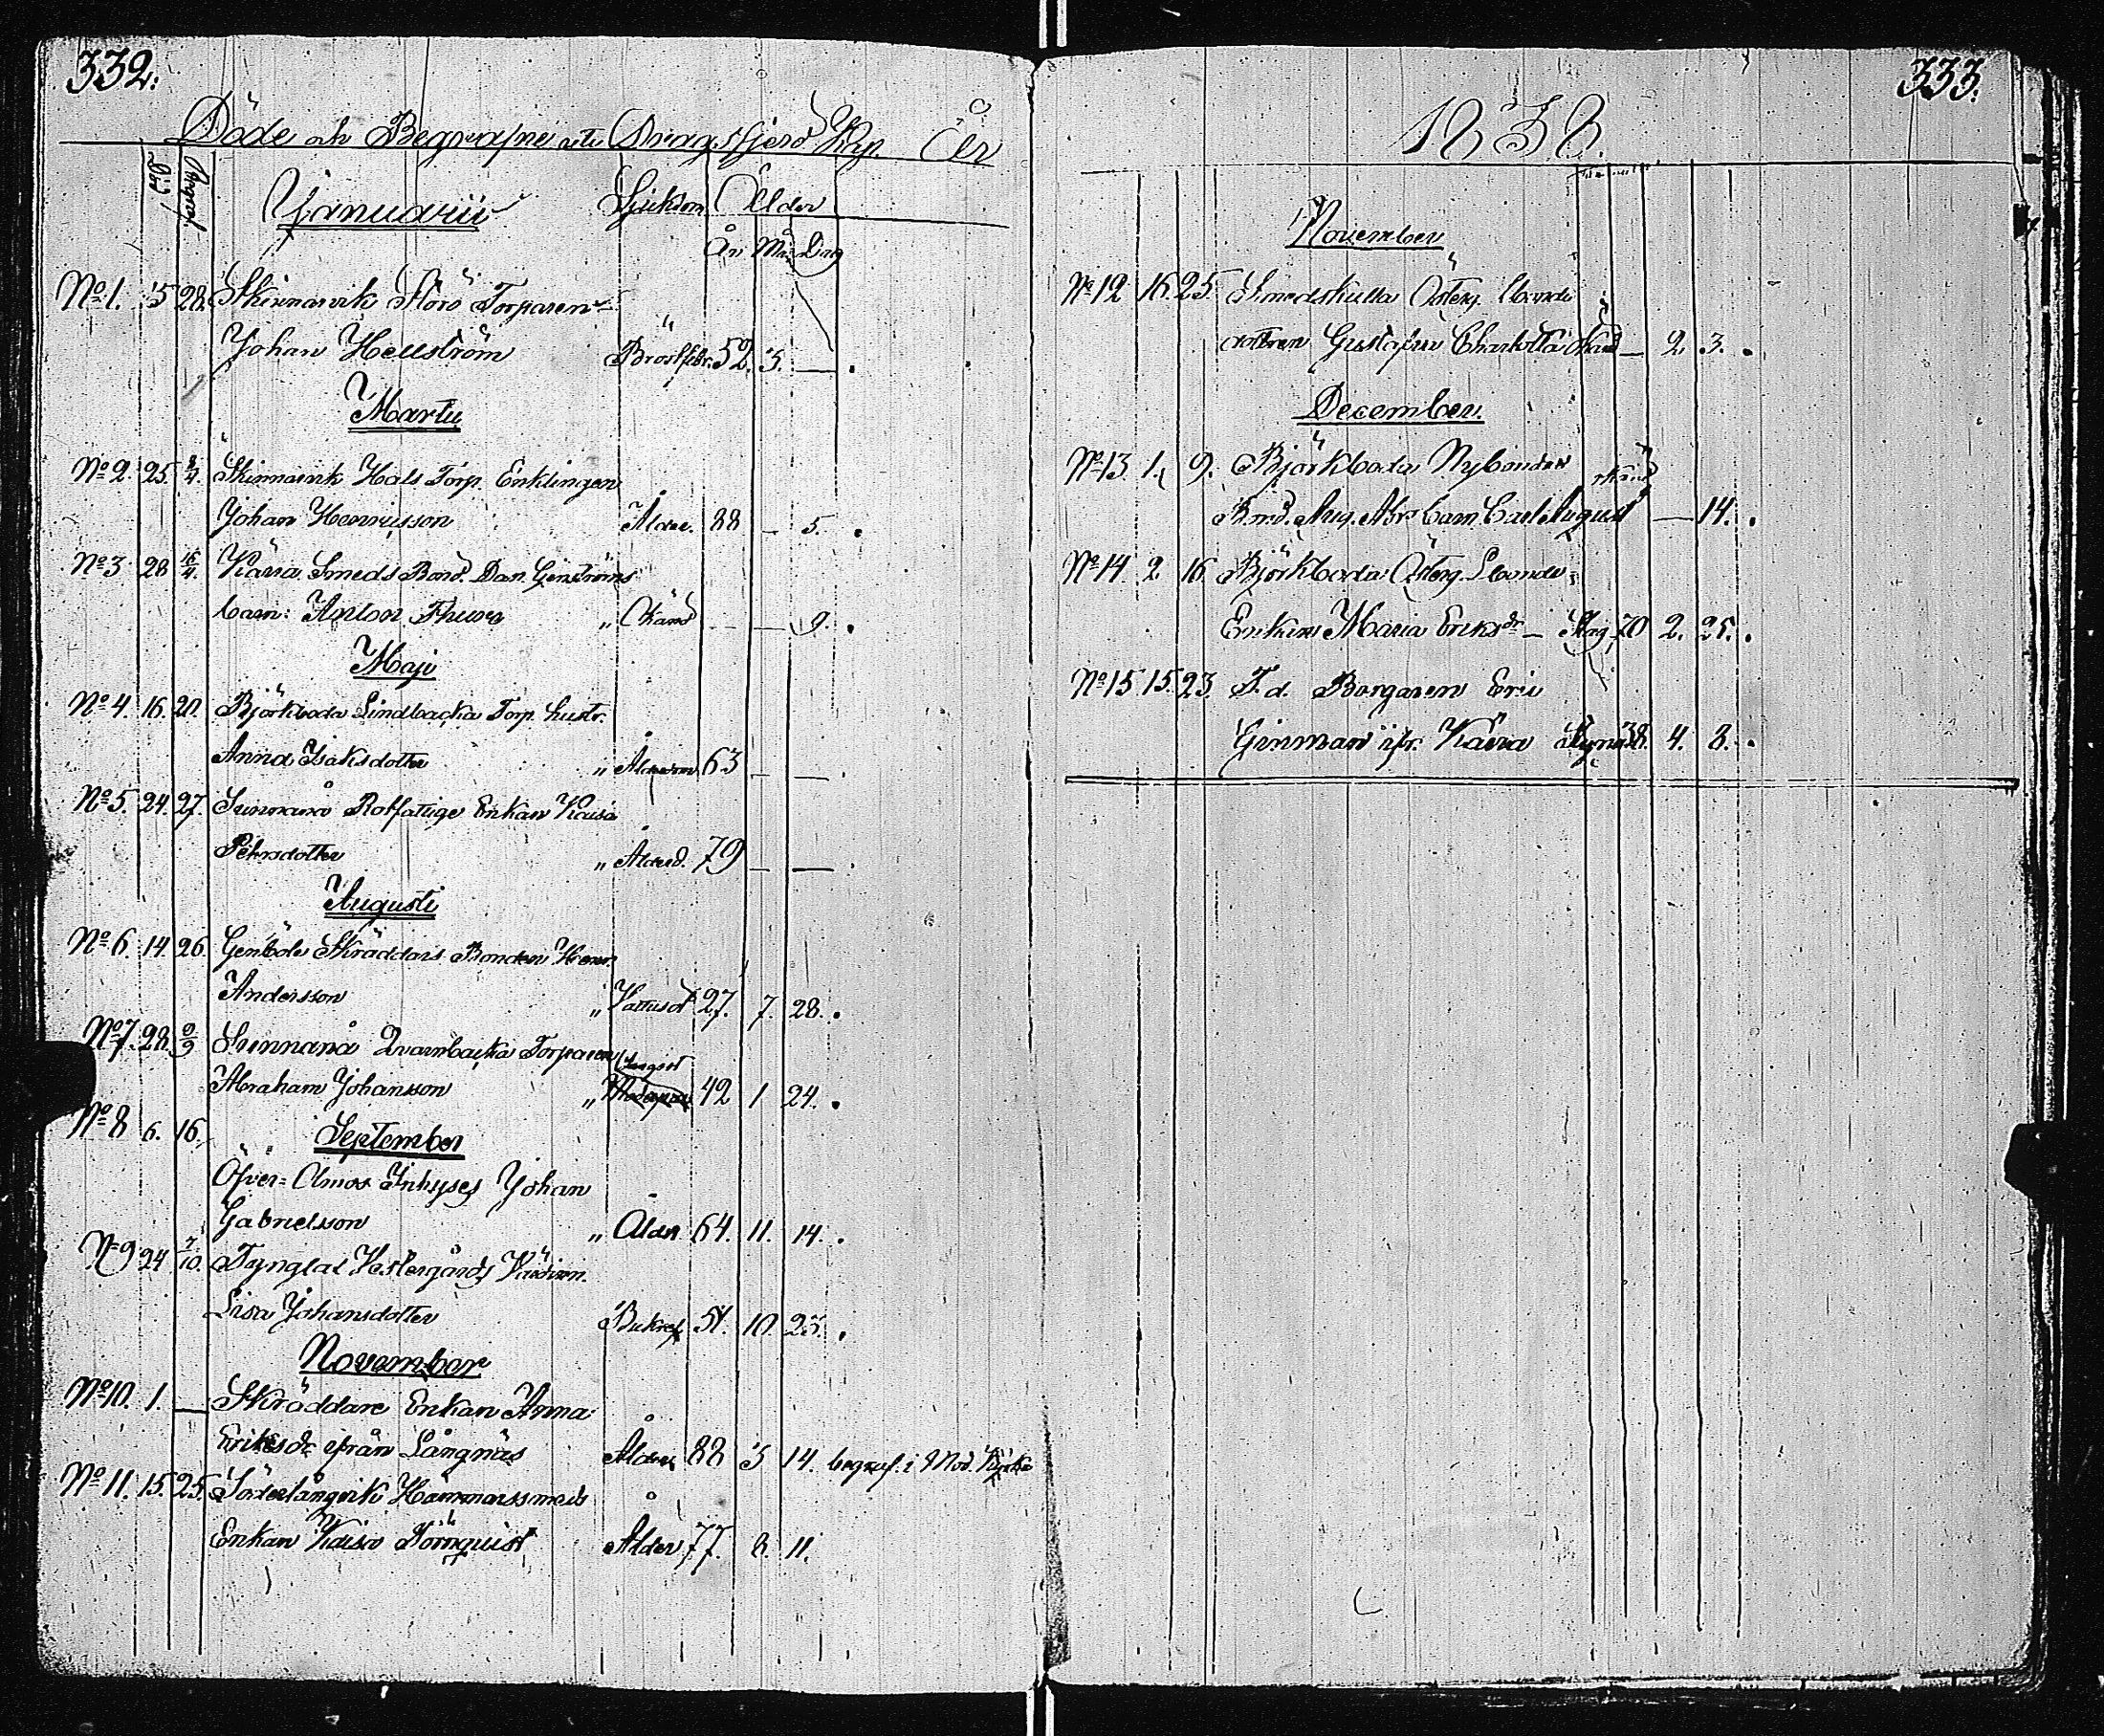 332.
Döde och Begrafne uti Dragsfjerd Kap. År
Död Begraf.
Januarii Sjukdom Ålder
År Mån Dag
No 1. 5 28. Skinnarvik Storö Torparen
Johan Hellström Bröstfeb. 52. 5. — .
Martii
No 2. 25. 8/4. Skinnarvik Hals Torp. Enklingen
Johan Henriksson Ålder. 88 — 5. .
No 3 28 16/4. Kärra Smeds Bond. Dan. Genströms
barn: Anton Thure " Okänd — — 9. .
Maji
No 4. 16. 20. Björkboda Lindbacka Torp. hustr.
Anna Isaksdotter " Ålderdom 63 — —
No 5. 24. 27. Sunnanå Rotfattige Enkan Kaisa
Pehrsdotter " Ålderd. 79 — — .
Augusti
No 6. 14. 26. Genböle Skräddars Bonden Henr.
Andersson " Vattusot 27. 7. 28. .
No 7. 28. 9/9 Sunnanå Qvarnbacka Torparen
Abraham Johansson " 42 1 24. .
No 8 6. 16. September
Öfver-Ölmos Inhyses Johan
Gabrielsson " Ålder 64. 11. 14. .
No 9 24 7/10. Tynglax Vestergårds Värdinn.
Lisa Johansdotter Bukref 51. 10. 25. .
November
No 10. 1. — Skräddare Enkan Anna
Eriksdr ifrån Långnäs Ålder 88 5 14. begraf. i Mod. Kyrka
No 11. 15. 25. Söderlångvik Hammarssmeds
Enkan Kaisa Törnquist Ålder 77. 8. 11.
333.
1838.
November
No 12 16. 25 Smedskulla Österg. Bonde
dottren Gustafva Charlotta okänd — 2. 3. .
December.
No 13 1. 9. Björkboda Nybondas okänd
Bond. Aug. Abr. barn Carl August — 14. .
No 14. 2 16. Björkboda Österg. Bonde
Enkan Maria Eriksdr — Slag 70 2. 25. .
No 15 15. 23. F. d. Borgaren Eric
Ginman ifr. Kärra 38. 4. 8. .